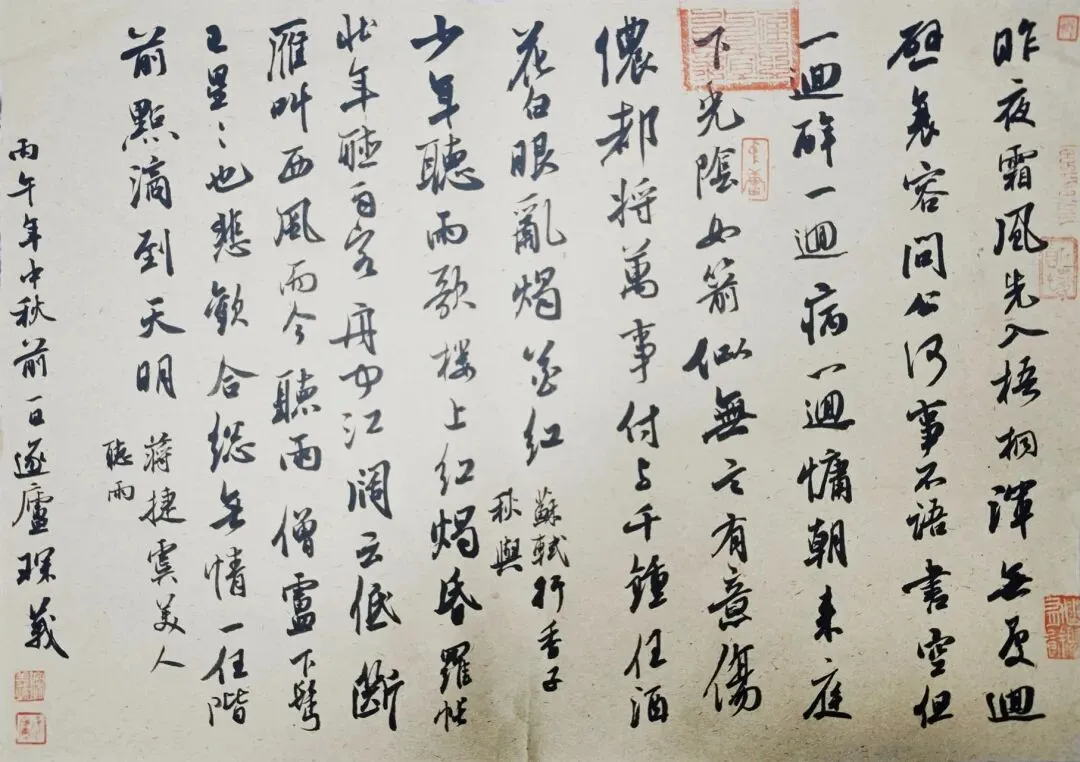 昨夜霜風先入梧桐渾無處迴
避衰容問公何事不語書空但
一迴醉一迴病一迴慵朝來庭
下光陰如箭似無言有意傷
儂都將萬事付与千鍾任酒
花白眼亂燭花紅
蘇軾行香子
秋與
少年聽雨歌楼上紅燭昏羅帐
壯年聽雨客舟中江闊云低斷
雁叫西風而今聽雨僧盧下鬢
已星〻也悲歡合總無情一任階
前點滴到天明
蔣捷虞美人
聽雨
丙午年中秋前一日遂廬琛義